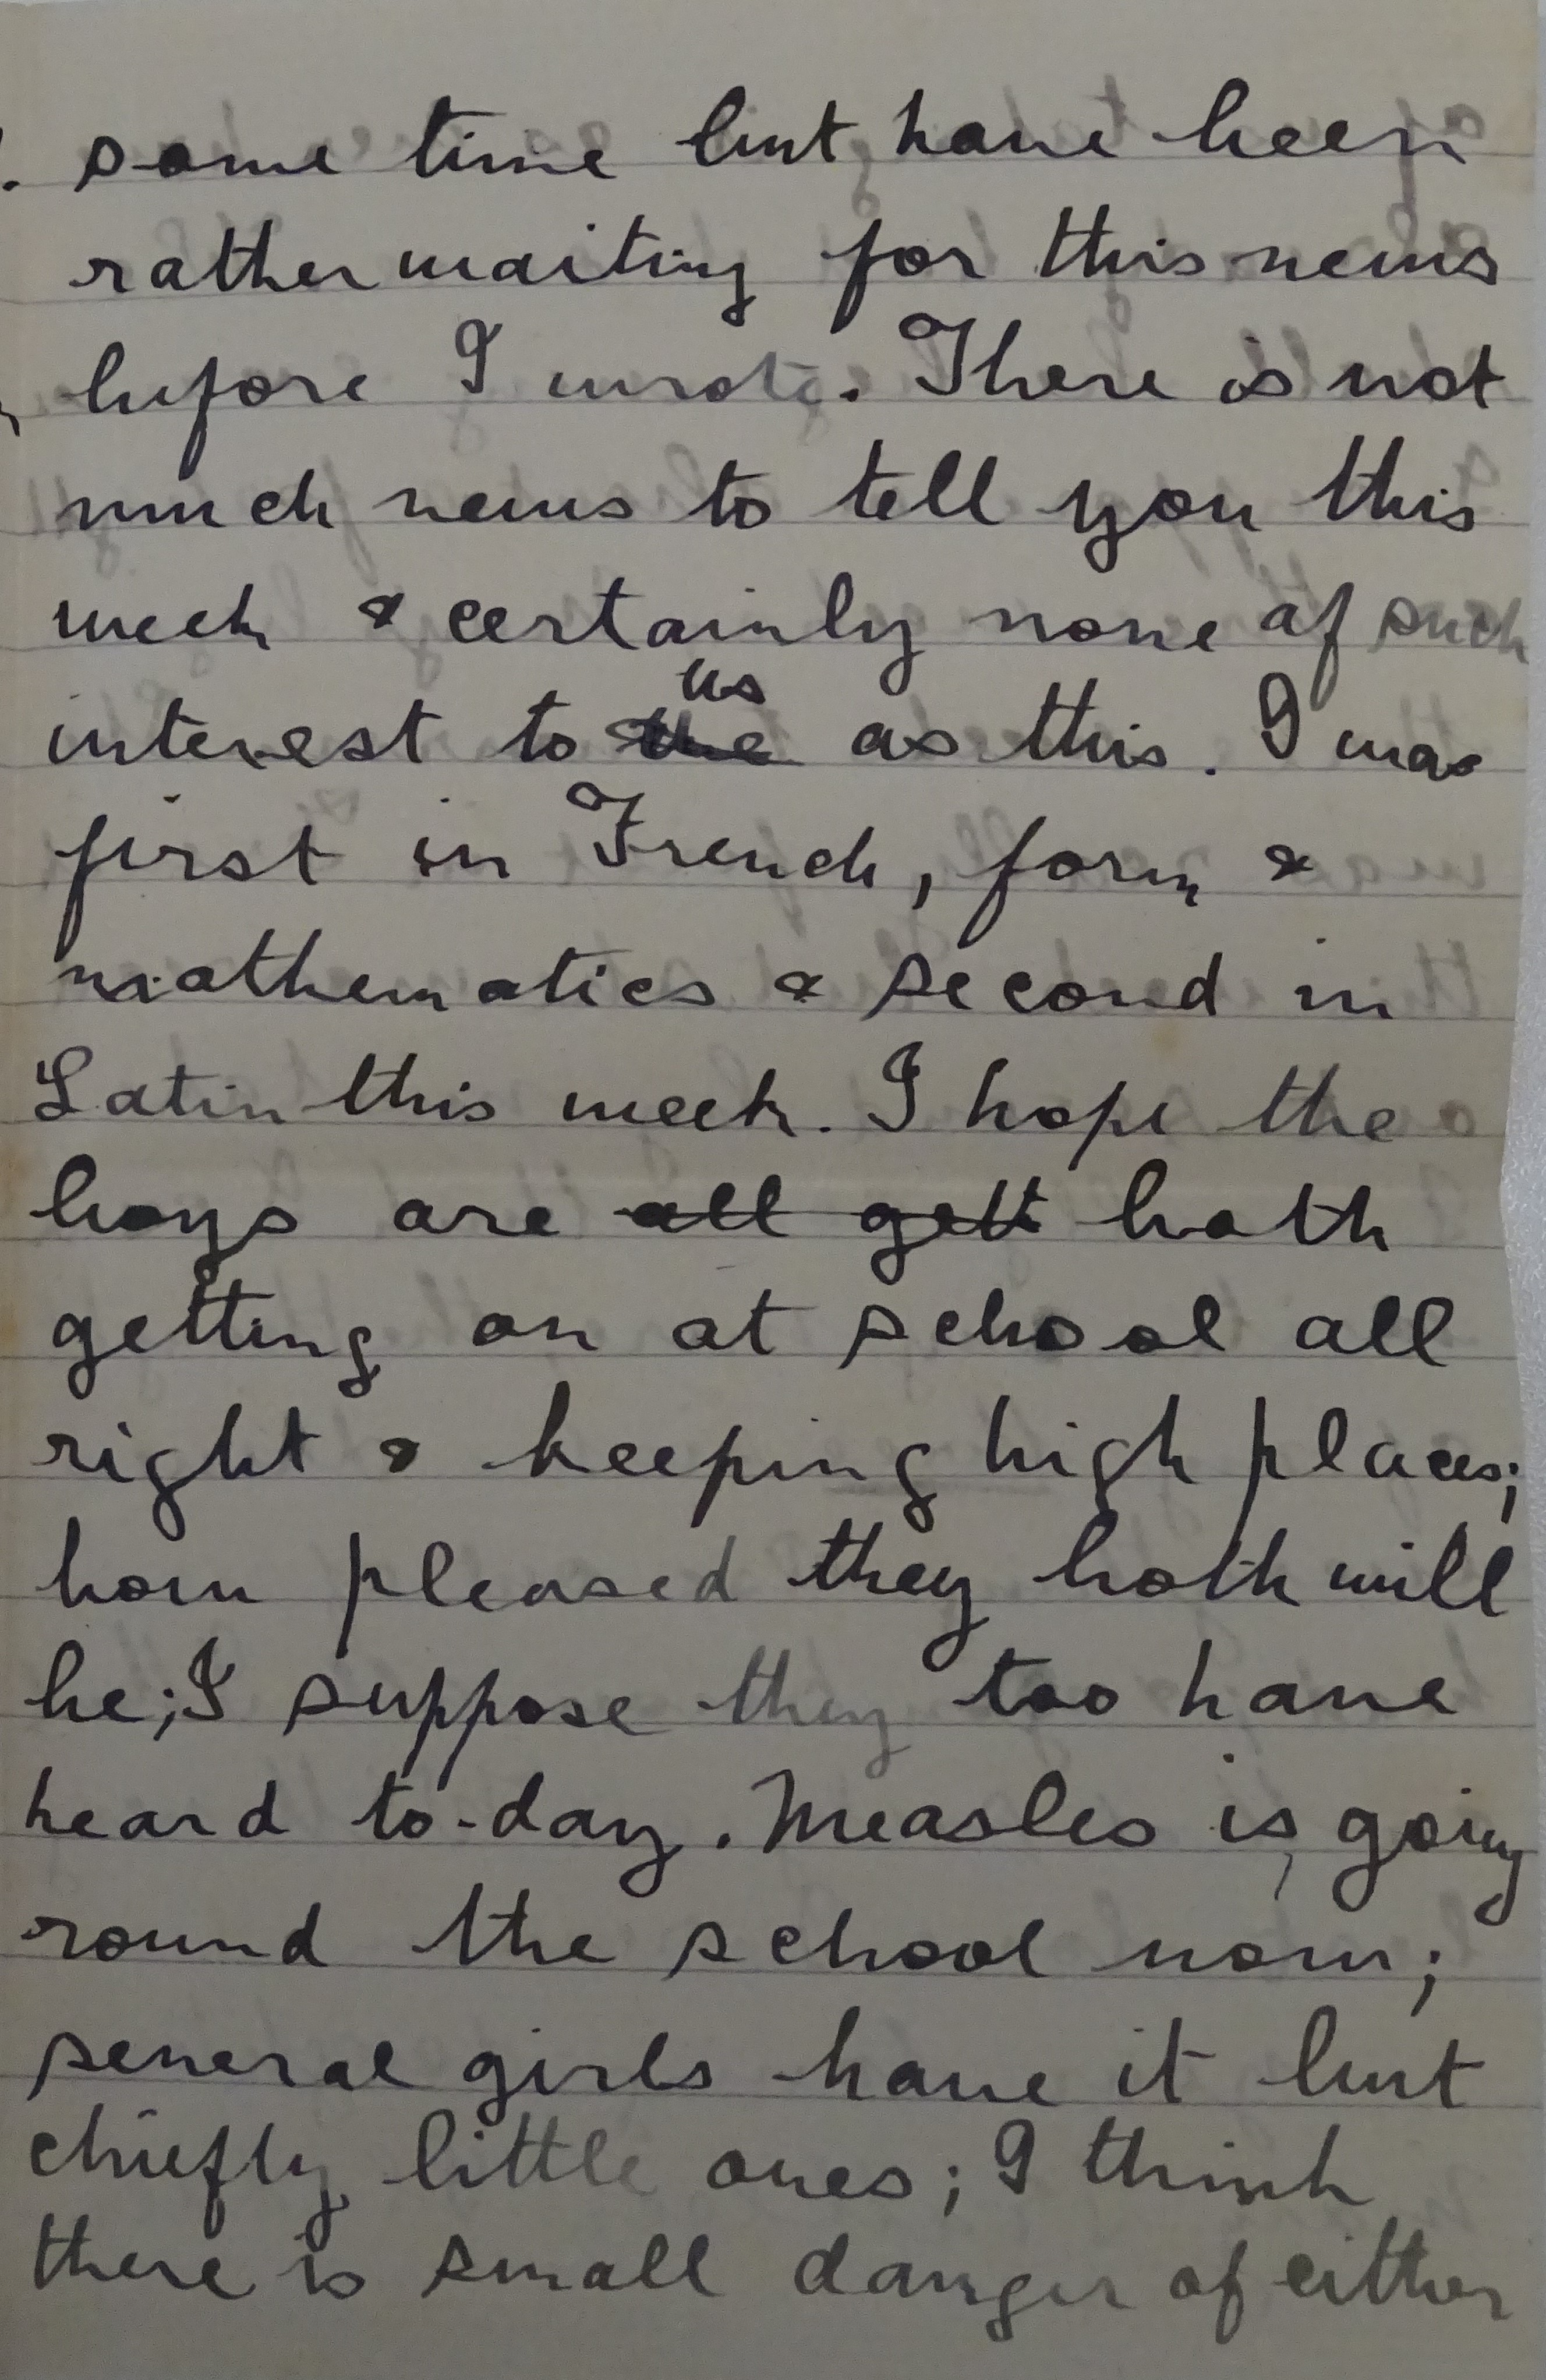 some time but have been
rather waiting for this news
before I wrote. There is not
much news to tell you this
week & certainly none of such
interest to us as this. I was
first in French, form &
mathematics & second in
Latin this week. I hope the
boys are all gett both
getting on at school all
right & keeping high places;
how pleased they both will
be; I suppose they too have
heard to-day. Measles is going
round the school now;
several girls have it but
chiefly little ones; I think
there is small danger of either